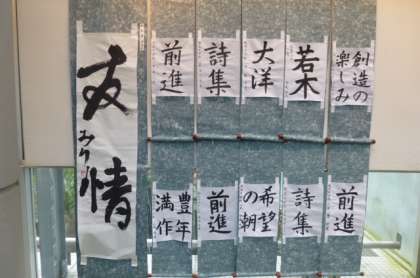 創造の
楽しみ
若木
大洋
詩集
前進
友情
みつ
前進
詩集
希望
の朝
前進
豊年
満作